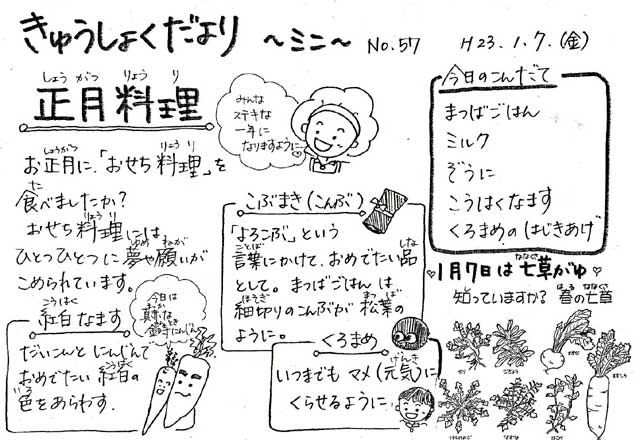 きゅうしょくだより ～ミニ～ No.57 H23.1.7.(金)
正月料理
しょうがつりょうり
みんな
ステキな
一年に
なりますように
お正月に、「おせち料理」を
食べましたか?
おせち料理には、
ひとつひとつに夢や願いが
こめられています。
紅白なます
こうはく
だいこんとにんじんで
おめでたい紅白の
色をあらわす.
今日は
にんじん
こぶまき(こんぶ)
「よろこぶ」という
言葉にかけて、おめでたい品
として。まつばごはんは
細切りのこんぶが松葉の
ように。
くろまめ
いつまでもマメ(元気)に
くらせるように
今日のこんだて
まつばごはん
ミルク
ぞうに
こうはくなます
くろまめのはじきあげ
1月7日は七草がゆ
知っていますか? 春の七草